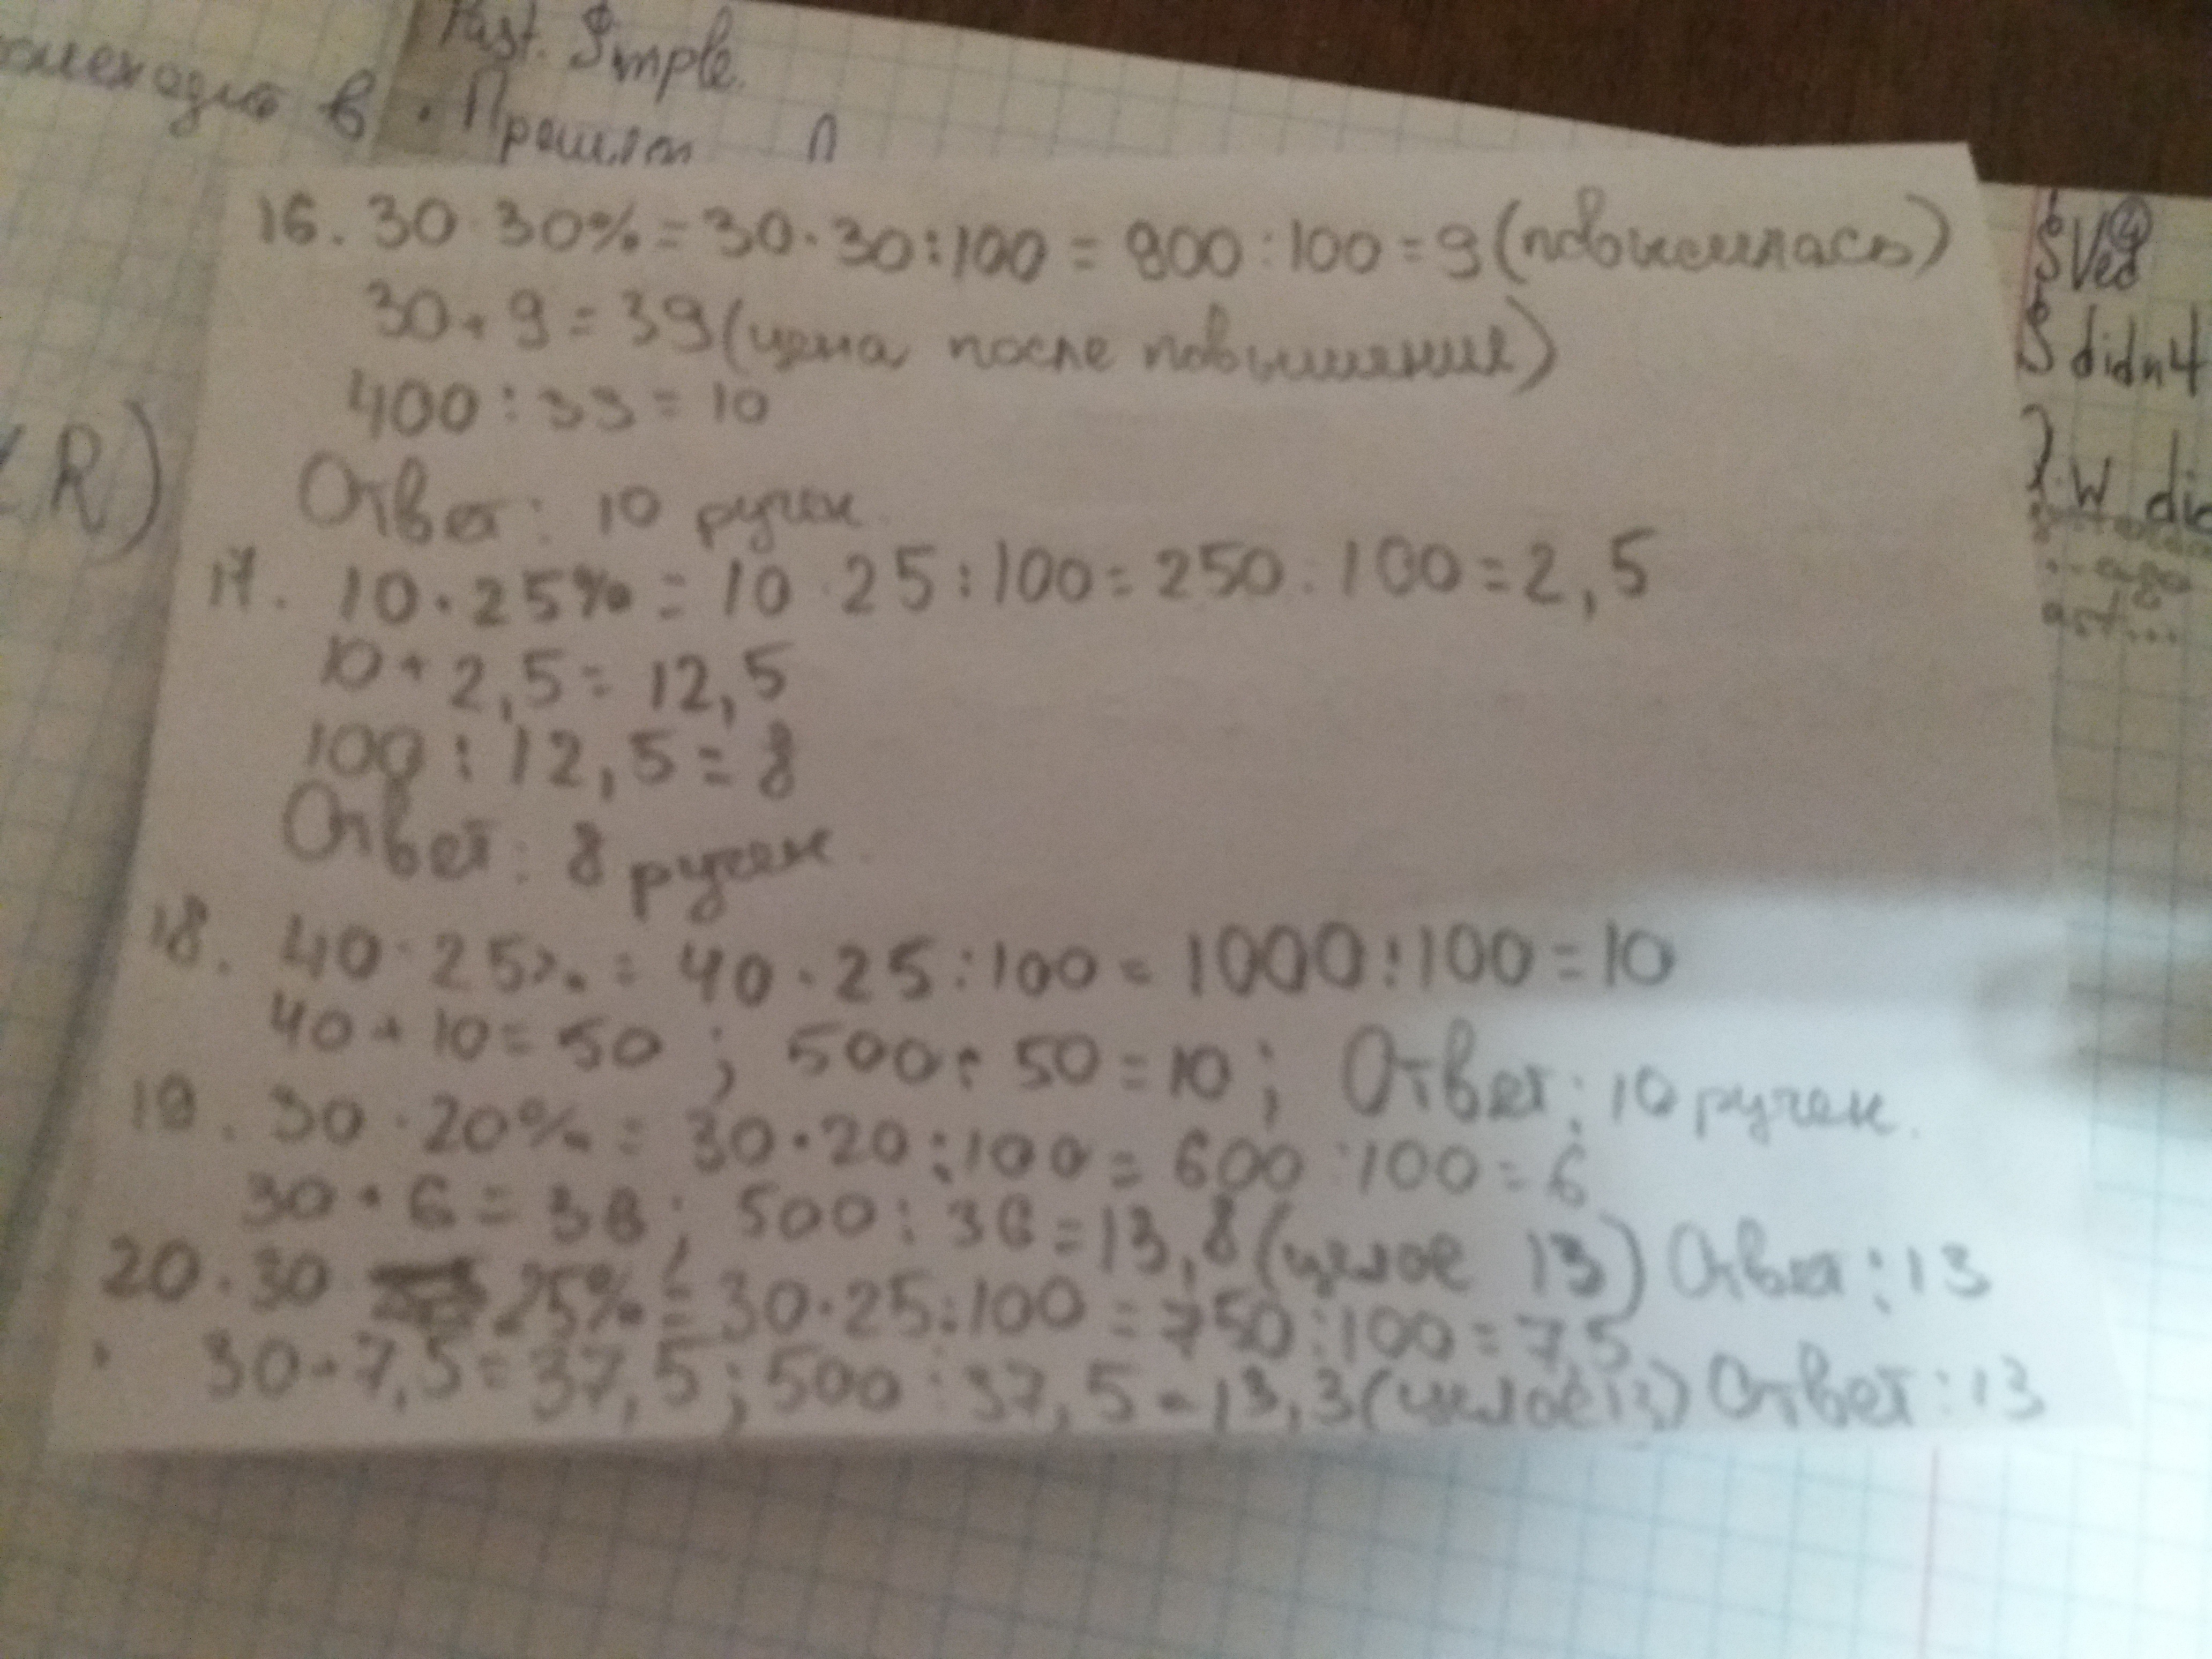 Past. Simple.
в . Прошлом
16. 30 · 30% = 30 · 30 : 100 = 900 : 100 = 9 (повысилась)
30 + 9 = 39 (цена после повышения)
400 : 39 = 10
Ответ: 10 ручек.
17. 10 · 25% = 10 · 25 : 100 = 250 : 100 = 2,5
10 + 2,5 = 12,5
100 : 12,5 = 8
Ответ: 8 ручек.
18. 40 · 25% = 40 · 25 : 100 = 1000 : 100 = 10
40 + 10 = 50 ; 500 : 50 = 10 ; Ответ: 10 ручек.
19. 30 · 20% = 30 · 20 : 100 = 600 : 100 = 6
30 + 6 = 36 ; 500 : 36 = 13,8 (целое 13) Ответ: 13
20. 30 25% = 30 · 25 : 100 = 750 : 100 = 7,5
30 + 7,5 = 37,5 ; 500 : 37,5 = 13,3 (целое 13) Ответ: 13
R)
S Ved
S didn't
? W did
...ago